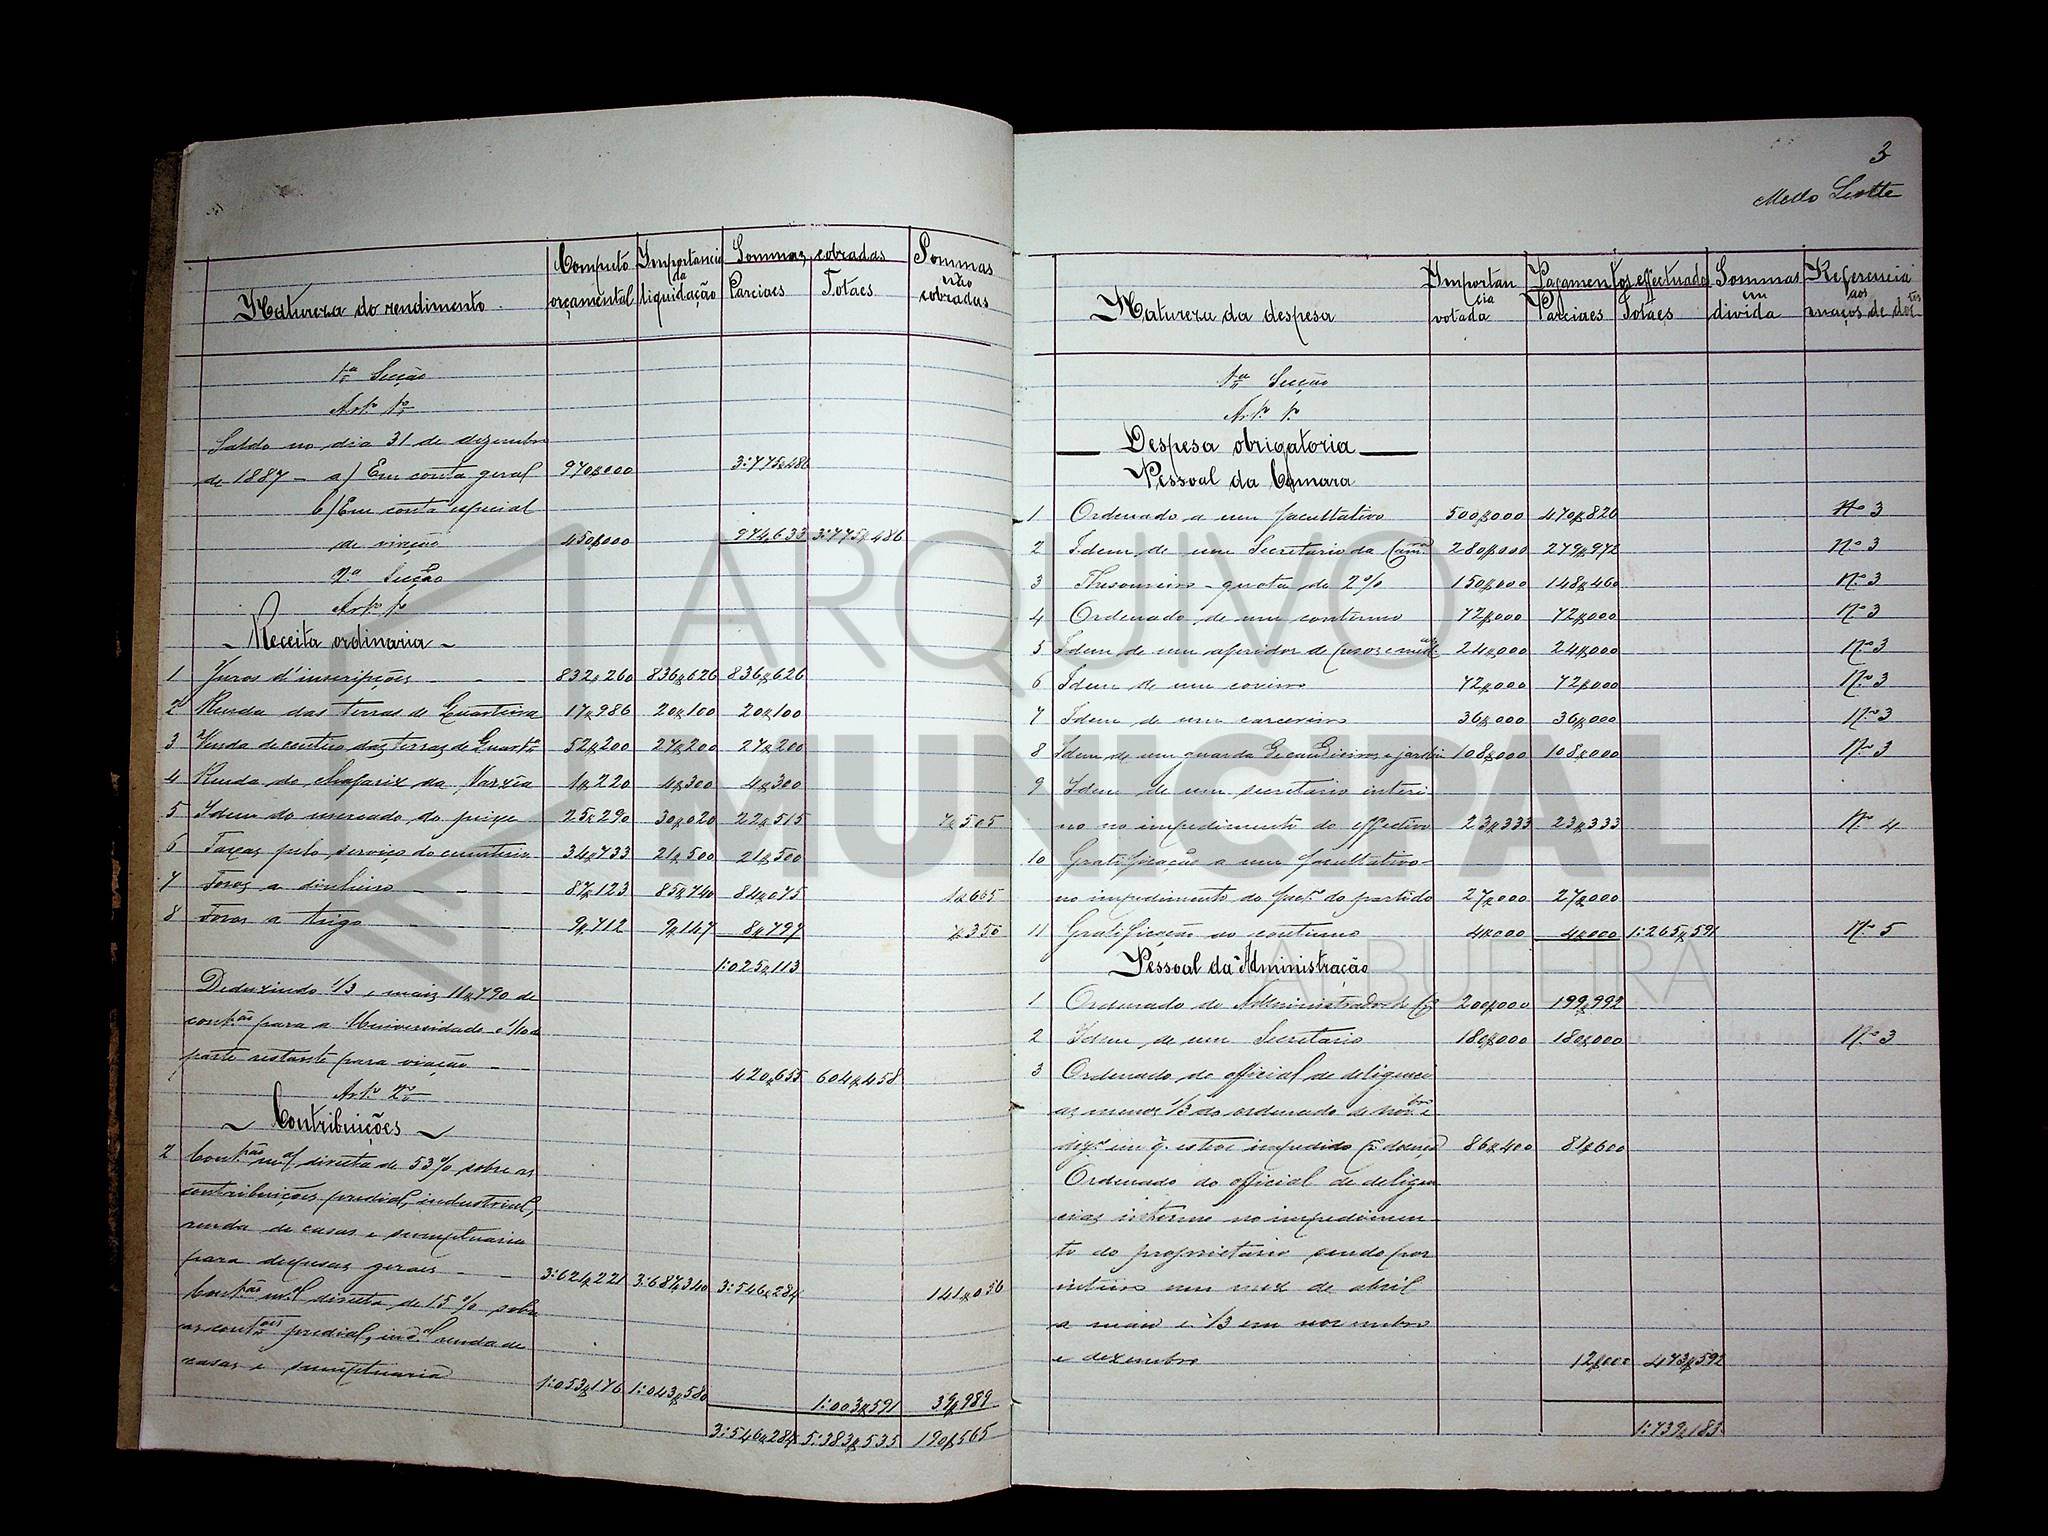 Natureza do rendimento
Computo orçamental
Importancia da liquidação
Sommas cobradas
Parciaes
Totaes
Sommas não cobradas
1ª Secção
Artº 1º
Saldo no dia 31 de dezembro
de 1887 - a) Em conta geral 970$000 3:775$486
b) Em conta especial
de viação 450$000 974$633 3:775$486
Secção
Artº 1º
- Receita ordinaria -
1 Juros d'inscripções - - 832$260 836$626 836$626
2 Renda das terras de Quarteira 17$986 20$100 20$100
3 Venda de centeio das terras de Quartª 52$200 27$200 27$200
4 Renda do chafariz da 1$220 4$300 4$300
5 Idem do mercado do peixe 25$290 30$020 22$515 7$505
6 Taxas pelo serviço do cemiterio 34$733 21$500 21$500
7 Foros a dinheiro - - 87$123 85$740 84$075 1$665
8 Foros a trigo 9$712 9$147 8$797 $350
1:025$113
Deduzindo 1/3 e mais 11$790 de
para a Universidade e 1/10 a
parte restante para viação - 420$655 604$458
Artº 2º
~ Contribuições ~
2 directa de 53% sobre as
contribuições predial, industrial,
renda de casas e sumptuaria
para despesas geraes - - 3:621$221 3:687$340 3:546$284 141$056
directa de 15% sobre
as predial, renda de
casas e sumptuaria 1:053$176 1:043$580 1:003$591 39$989
3:546$284 5:383$535 190$565
3
Mello Leotte
Natureza da despesa
Importancia votada
Pagamentos effectuados
Parciaes
Totaes
Sommas em divida
Referencia aos maços de doctos
1ª Secção
Artº 1º
Despesa obrigatoria
Pessoal da Camara
1 Ordenado a um facultativo 500$000 470$820 Nº 3
2 Idem de um Secretario da Camª 280$000 279$972 Nº 3
3 Thesoureiro - quota de 2% 150$000 148$460 Nº 3
4 Ordenado de um continuo 72$000 72$000 Nº 3
5 Idem de um aferidor de pesos e medªs 24$000 24$000 Nº 3
6 Idem de um coveiro 72$000 72$000 Nº 3
7 Idem de um carcereiro 36$000 36$000 Nº 3
8 Idem de um guarda de candieiros e jardim 108$000 108$000 Nº 3
9 Idem de um secretario interi-
no no impedimento do effectivo 23$333 23$333 Nº 4
10 Gratificação a um facultativo
no impedimento do do partido 27$000 27$000
11 Gratificação ao continuo 4$000 4$000 1:265$591 Nº 5
Pessoal da Administração
1 Ordenado do Administrador do 200$000 199$992
2 Idem de um Secretario 180$000 180$000 Nº 3
3 Ordenado do official de deligenci
as menos 1/3 do ordenado de novbro e
em q. esteve impedido pr doença 86$400 81$600
Ordenado do official de deligen
cias interino no impedimen-
to do proprietario sendo por
inteiro um mez de abril
a maio e 1/3 em novembro
e dezembro 12$000 473$592
1:739$183
ARQUIVO
MUNICIPAL
ALBUFEIRA